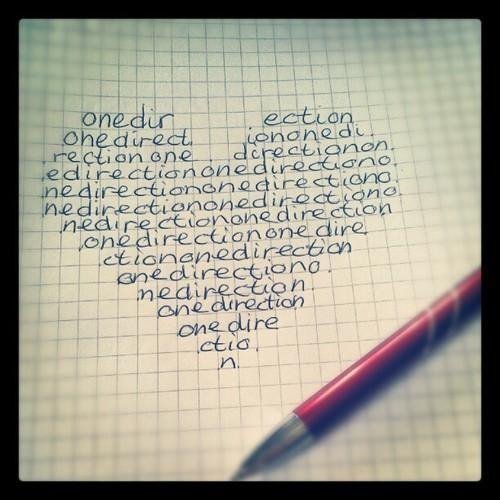 onedir ection
onedirect iononedi
rectionone dcrectionon
edirectiononedirectiono
nedirectiononedirectiono
nedirectiononedirectiono
nedirectiononedirection
onedirectiononedire
ctiononedirection
onedirectiono
nedirection
onedirection
onedire
ctio
n